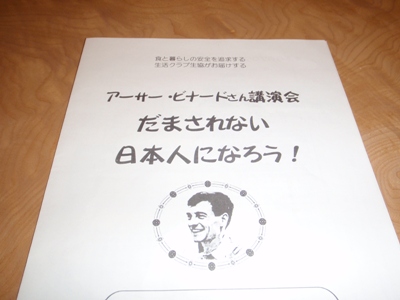 食と暮らしの安全を追求する
生活クラブ生協がお届けする
アーサー・ビナードさん講演会
だまされない
日本人になろう！